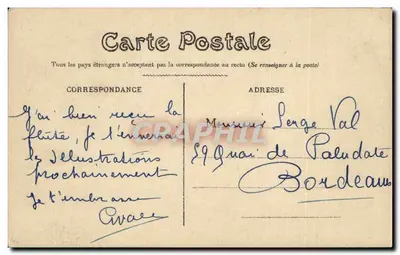 Carte Postale
Tous les pays étrangers n'acceptent pas la correspondance au recto (Se renseigner à la poste)
CORRESPONDANCE
ADRESSE
J'ai bien reçu la
flûte, je t'enverrai
les Illustrations
prochainement
Je t'embrasse
Monsieur Serge Val
59 Quai de Paludate
Bordeaux